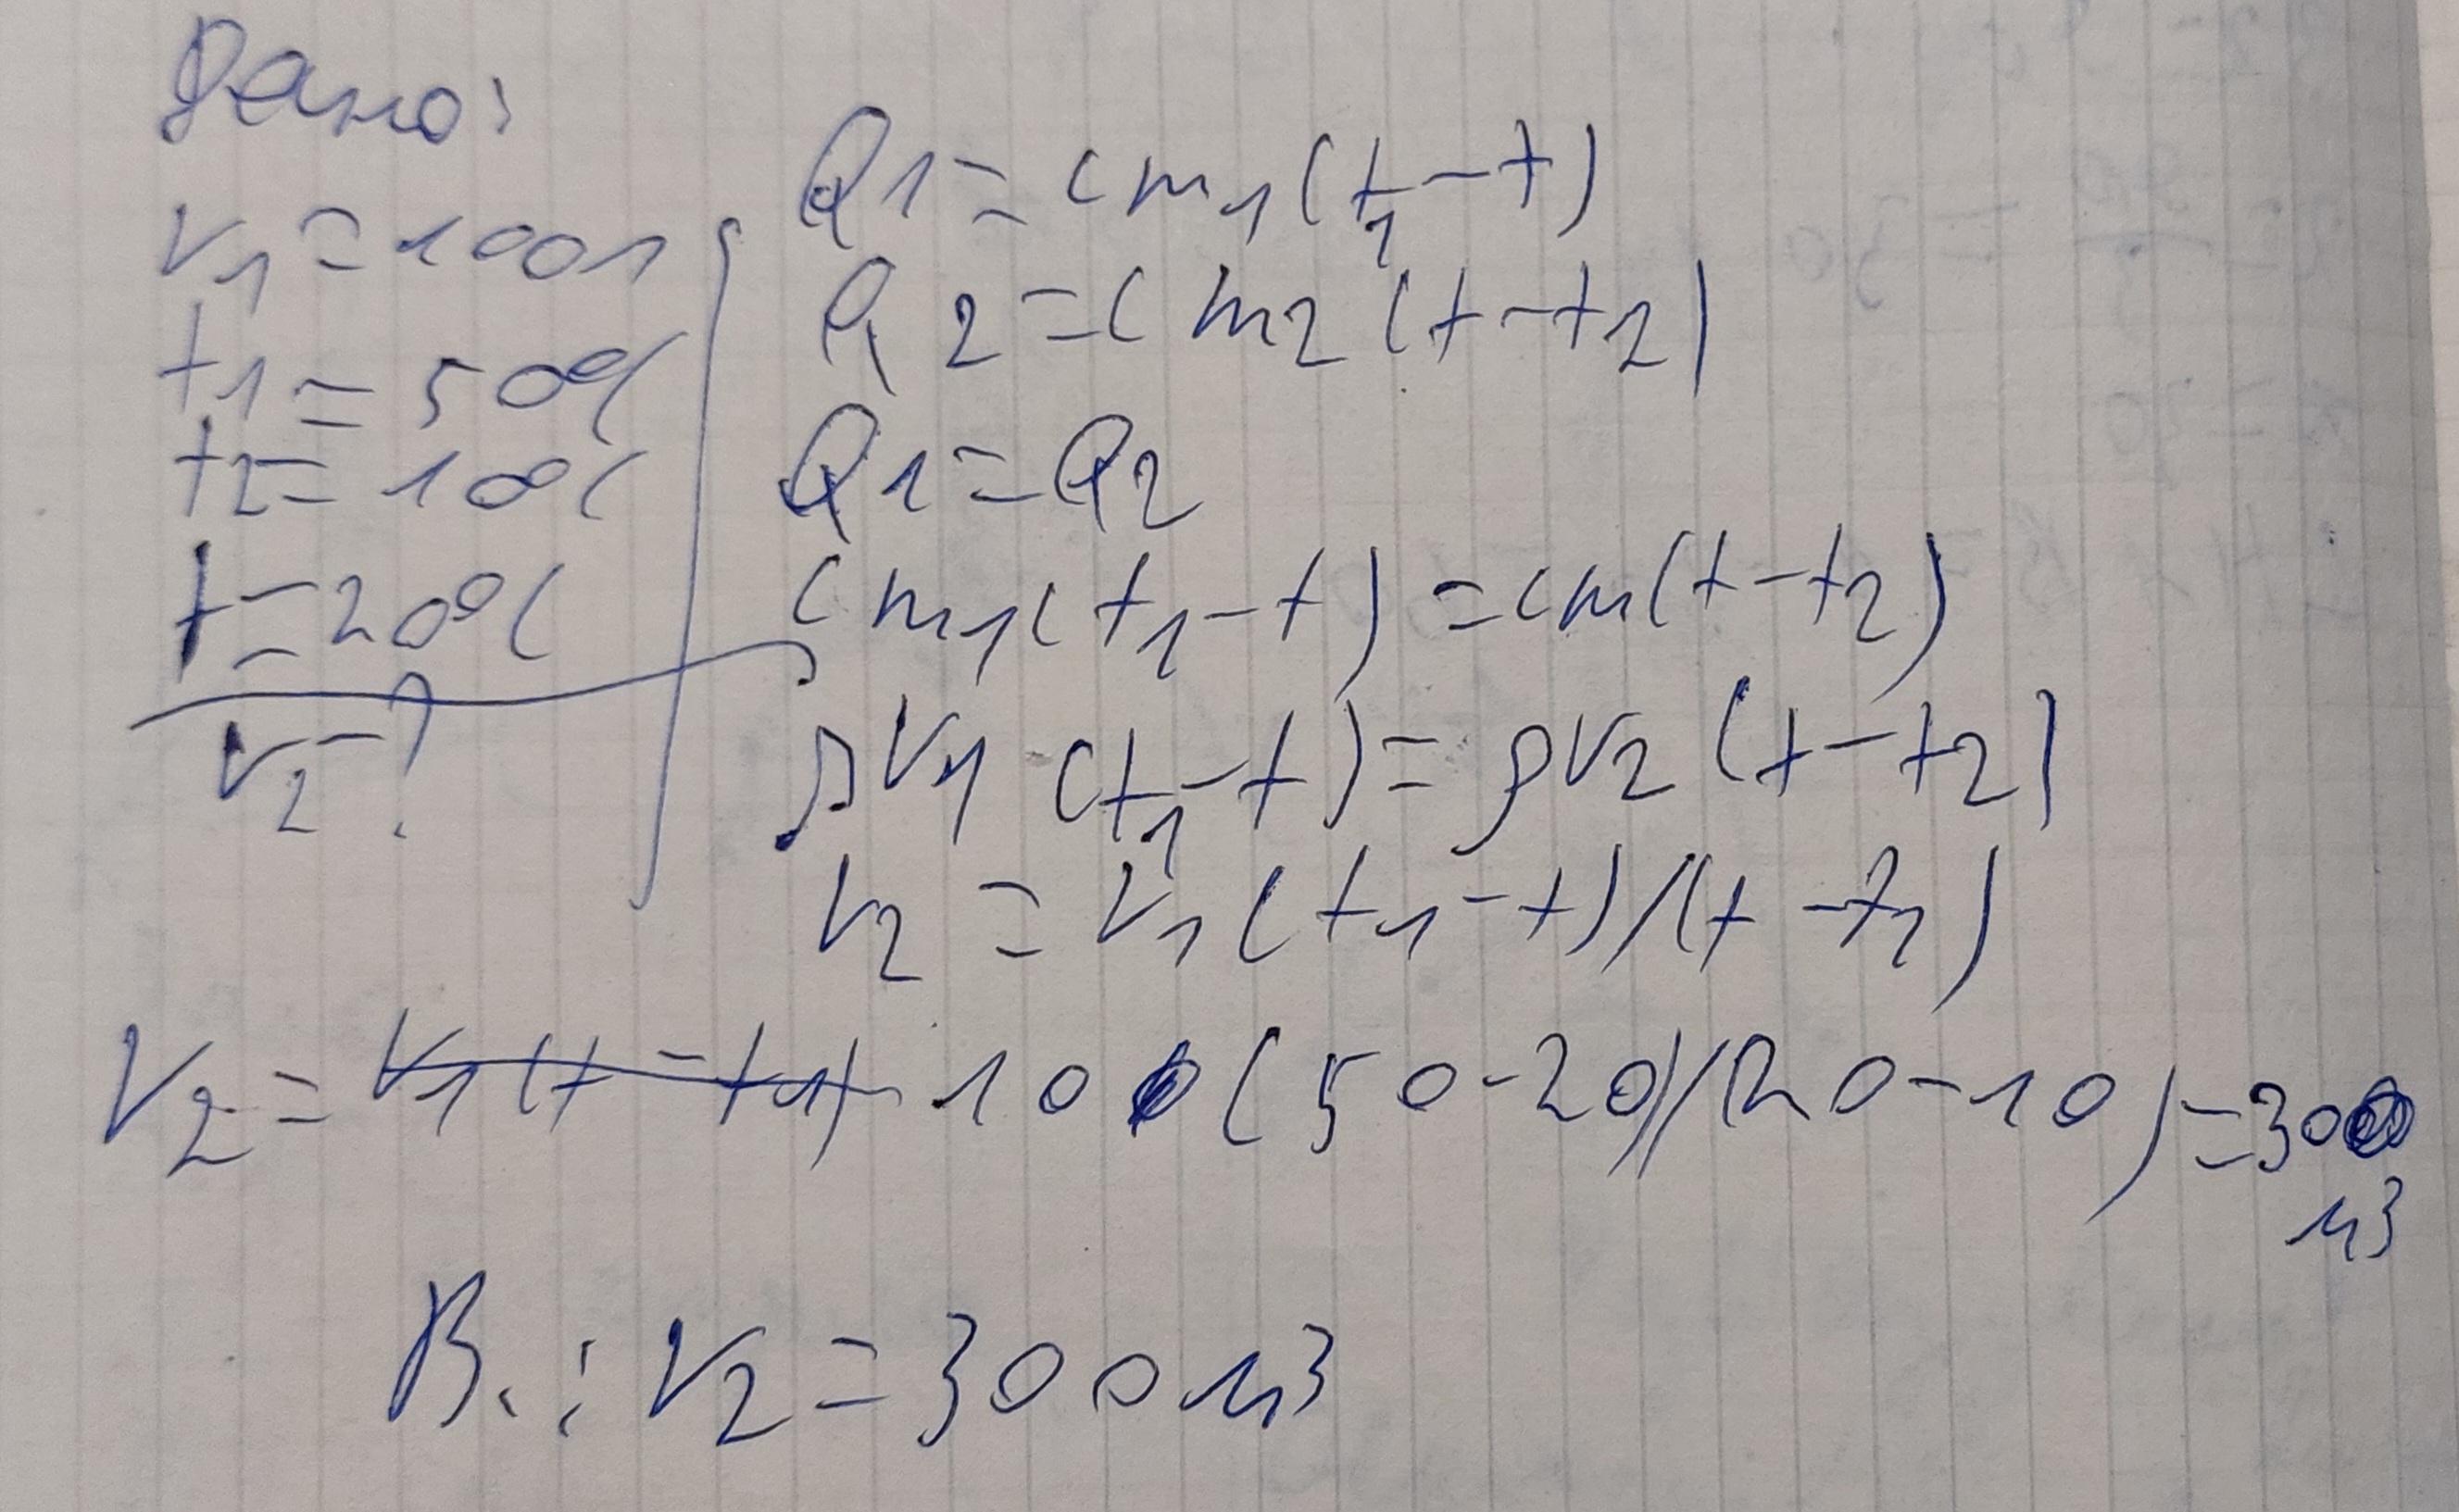 Дано:
V1 = 100л
t1 = 50°C
t2 = 10°C
t = 20°C
V2 - ?
Q1 = cm1(t1 - t)
Q2 = cm2(t - t2)
Q1 = Q2
cm1(t1 - t) = cm(t - t2)
ρV1 (t1 - t) = ρV2 (t - t2)
V2 = V1(t1 - t)/(t - t2)
V2 = 100(50-20)/(20-10) = 300
м3
В.: V2 = 300 м3